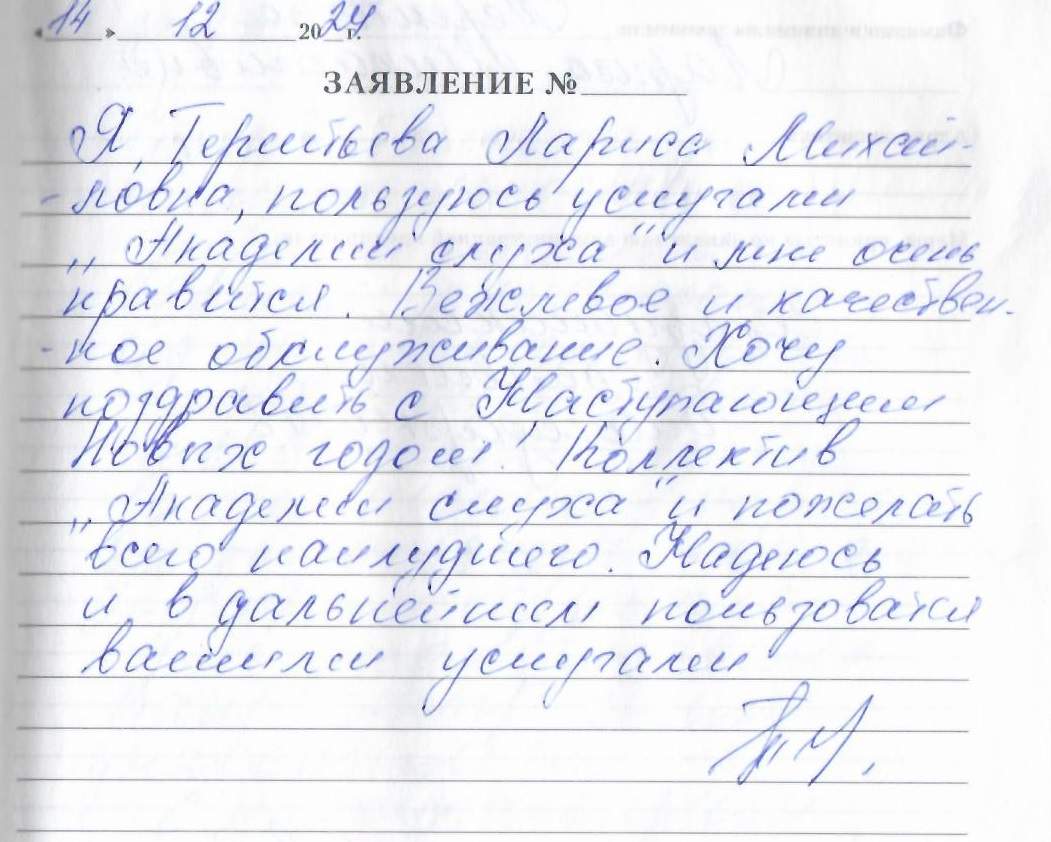 «14» 12 2024 г.
ЗАЯВЛЕНИЕ №
Я, Терентьева Лариса Михай-
-ловна, пользуюсь услугами
„Академии слуха" и мне очень
нравится. Вежливое и качествен-
-ное обслуживание. Хочу
поздравить с Наступающим
Новых годом! Коллектив
„Академии слуха" и пожелать
всего наилудшего. Надеюсь
и в дальнейшем пользоватся
вашими услугами